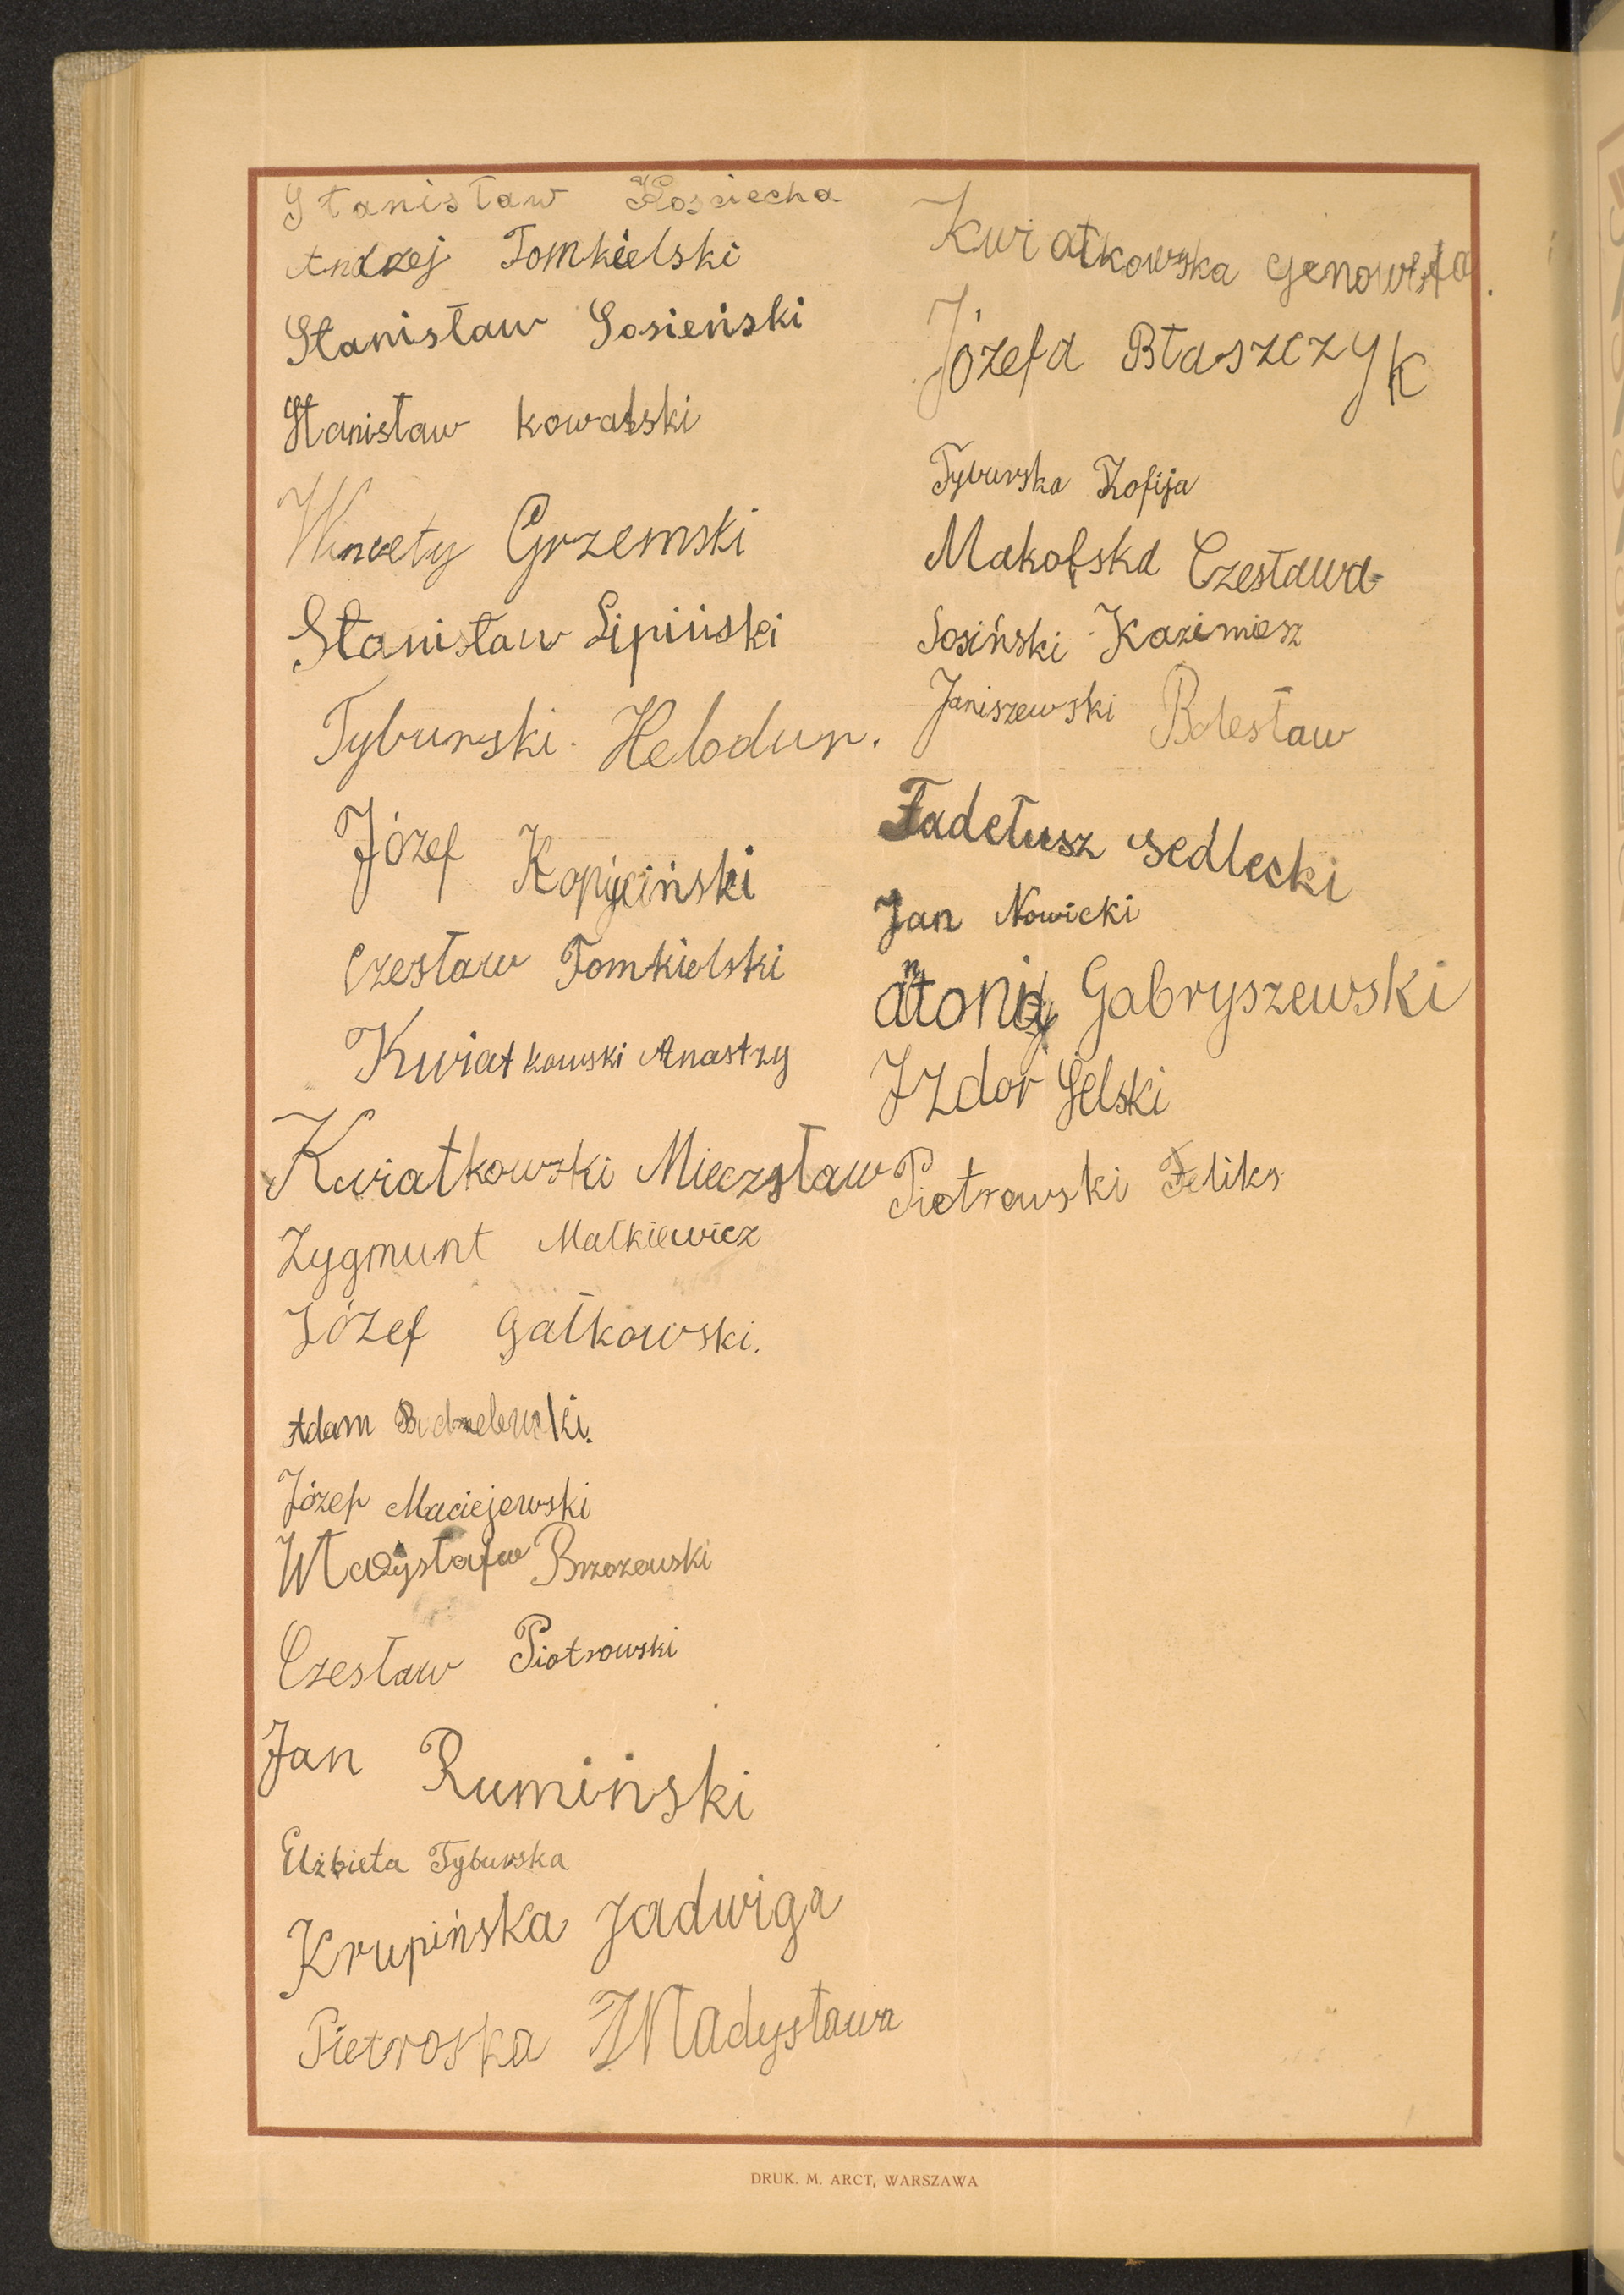 Stanisław Kosciecha
Andrzej Tomkielski
Stanisław Sosieński
Stanisław Kowalski
Wincety Grzemski
Stanisław Lipiński
Tyburski Helodur.
Józef Kopyciński
Czesław Tomkielski
Kwiatkowski Anastzy
Kwiatkowski Mieczsław
Zygmunt Małkiewicz
Józef Gałkowski.
Adam
Józef Maciejewski
Brzozowski
Czesław Piotrowski
Jan Rumiński
Elżbieta Tyburska
Krupińska Jadwiga
Pietroska Władysława
Kwiatkowska Genowefa.
Józefa Błaszczyk
Tyburska Zofija
Makofska Czesława
Sosiński Kazimiesz
Janiszewski Bolesław
Tadełusz Sedlecki
Jan Nowicki
antoni Gabryszewski
Izdor Gelski
Piotrowski Feliks
DRUK. M. ARCT, WARSZAWA